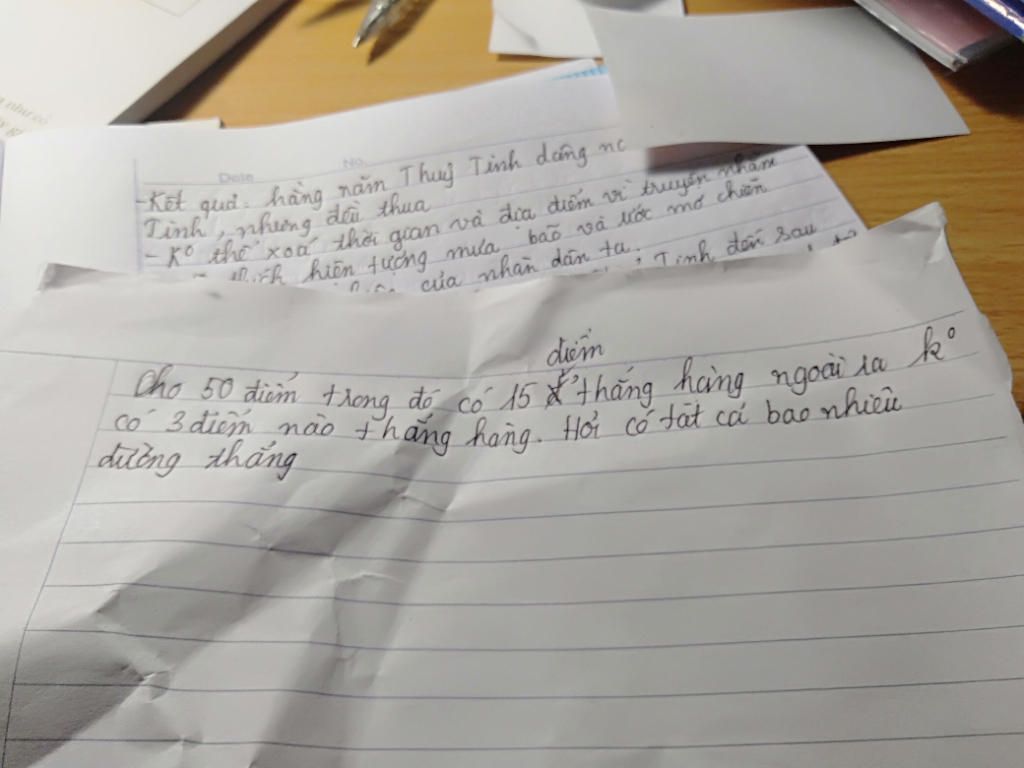 Date
No.
-Kết quả: hằng năm Thuỷ Tinh dâng
Tinh, nhưng đều thua
- Kº thể xoá thời gian và địa điểm vì truyền nhằm
thích hiện tượng mưa bão và ước mơ chiến
của nhân dân ta.
Tinh đến sau
điểm
Cho 50 điểm trong đó có 15 thẳng hàng ngoài ra kº
có 3 điểm nào thẳng hàng. Hỏi có tất cả bao nhiêu
đường thẳng